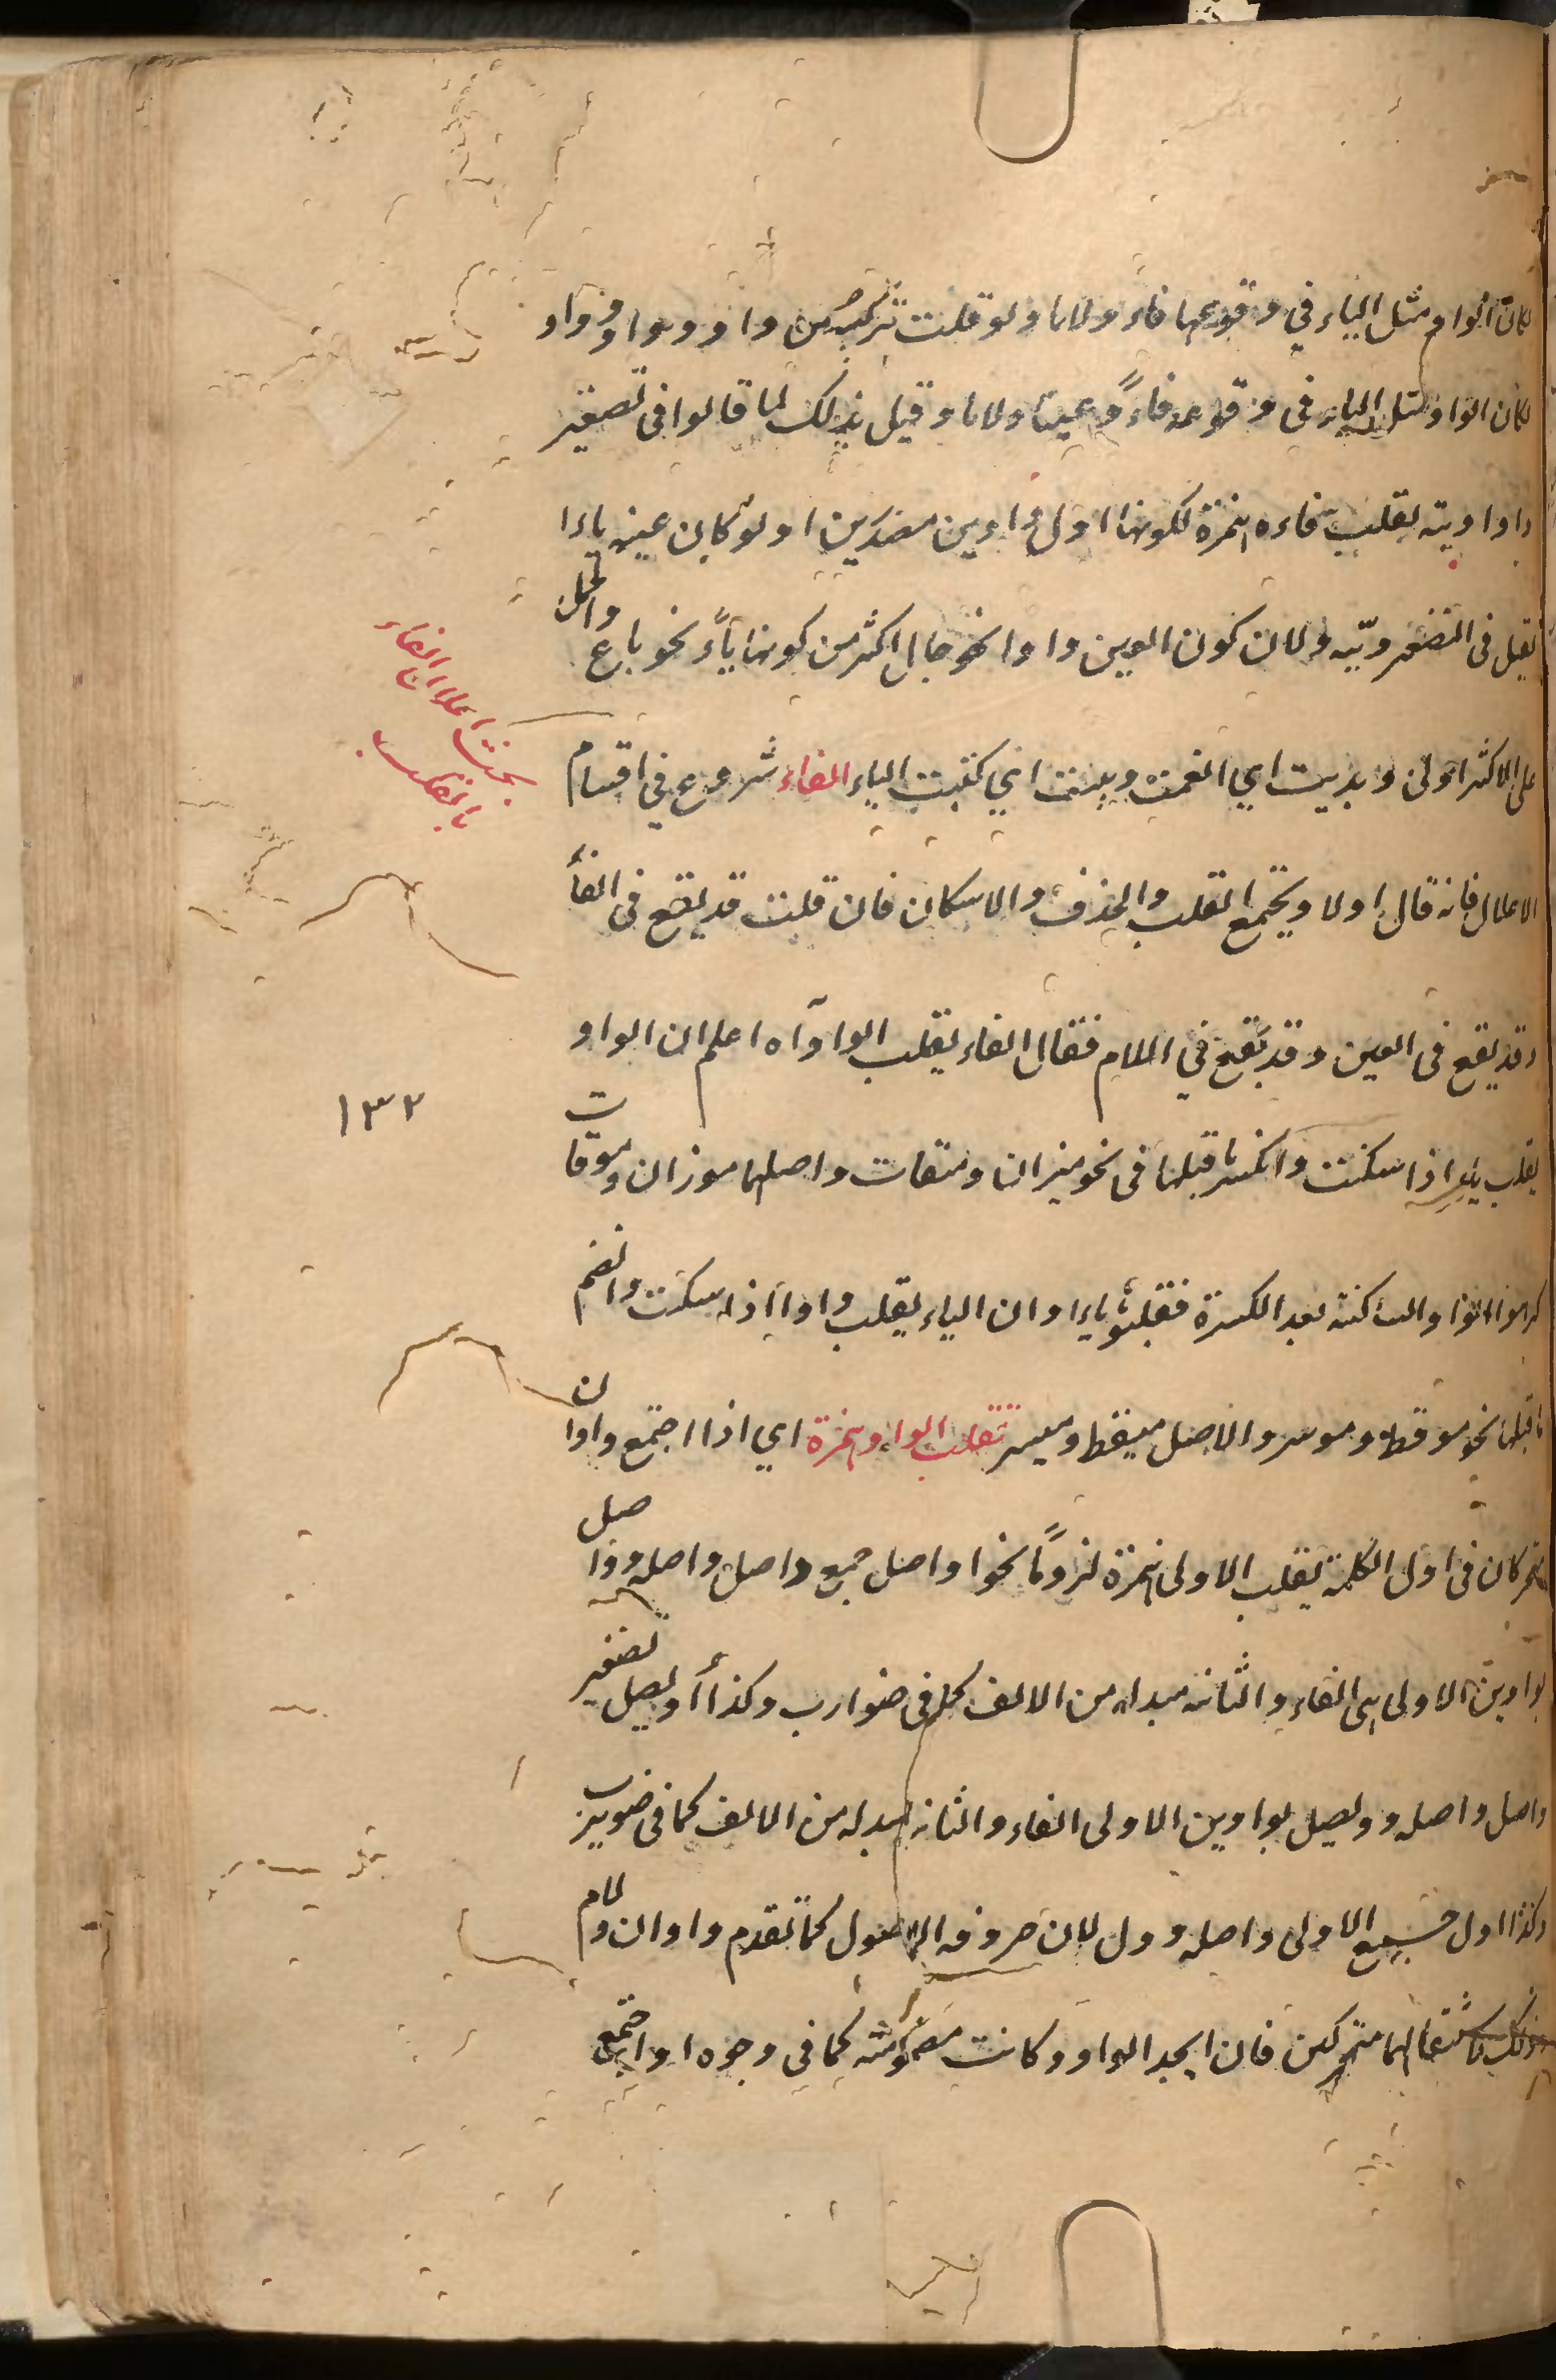 لكان الواو مثل الياء في وقوعها فاء ولاما ولو قلت تركبه من واو وواو وواو
لكان الواو مثل الياء في وقوعه فاءً وعينا ولاما وقيل بذلك لما قالوا في تصغير
واو اوية بقلب فاءه همزة لكونها اول واوين مصدرين ولو كان عينه ياءا
لقيل في التصغير وييه ولان كون العين واوا نحو جال اكثر من كونها ياءً نحو باع والحمل
على الاكثر اولى و يديت اي انعمت وييت اي كتبت الياء الفاء شروع في اقسام
الاعلال فانه قال اولا ويجتمع القلب والحذف والاسكان فان قلت قد يقع في الفاء
وقد يقع في العين وقد يقع في اللام فقال الفاء يقلب الواو آه اعلم ان الواو
يقلب ياء اذا سكنت وانكسر ما قبلها في نحو ميزان وميقات واصلهما موزان وموقات
كرهوا الواو الساكنة بعد الكسرة فقلبوها ياءا وان الياء يقلب واوا اذا سكنت وانضم
ما قبلها نحو موقظ وموسر والاصل ميقظ وميسر تقلب الواو همزة اي اذا اجتمع واوان
متحركان في اول الكلمة يقلب الاولى همزة لزومًا نحو اواصل جمع واصل واصله وواصل
بواوين الاولى هي الفاء والثانية مبدلة من الالف كما في ضوارب وكذا أويصل تصغير
واصل واصله وويصل بواوين الاولى الفاء والثانية مبدلة من الالف كما في ضويرب
وكذا اول جمع الاولى واصله وول لان حروفه الاصول كما تقدم واوان ولام
وذلك لاستثقالهما متحركين فان اتحد الواو وكانت مضمومة كما في وجوه او اجتمع
بحث اعلال الفاء
بالقلب
١٣٢